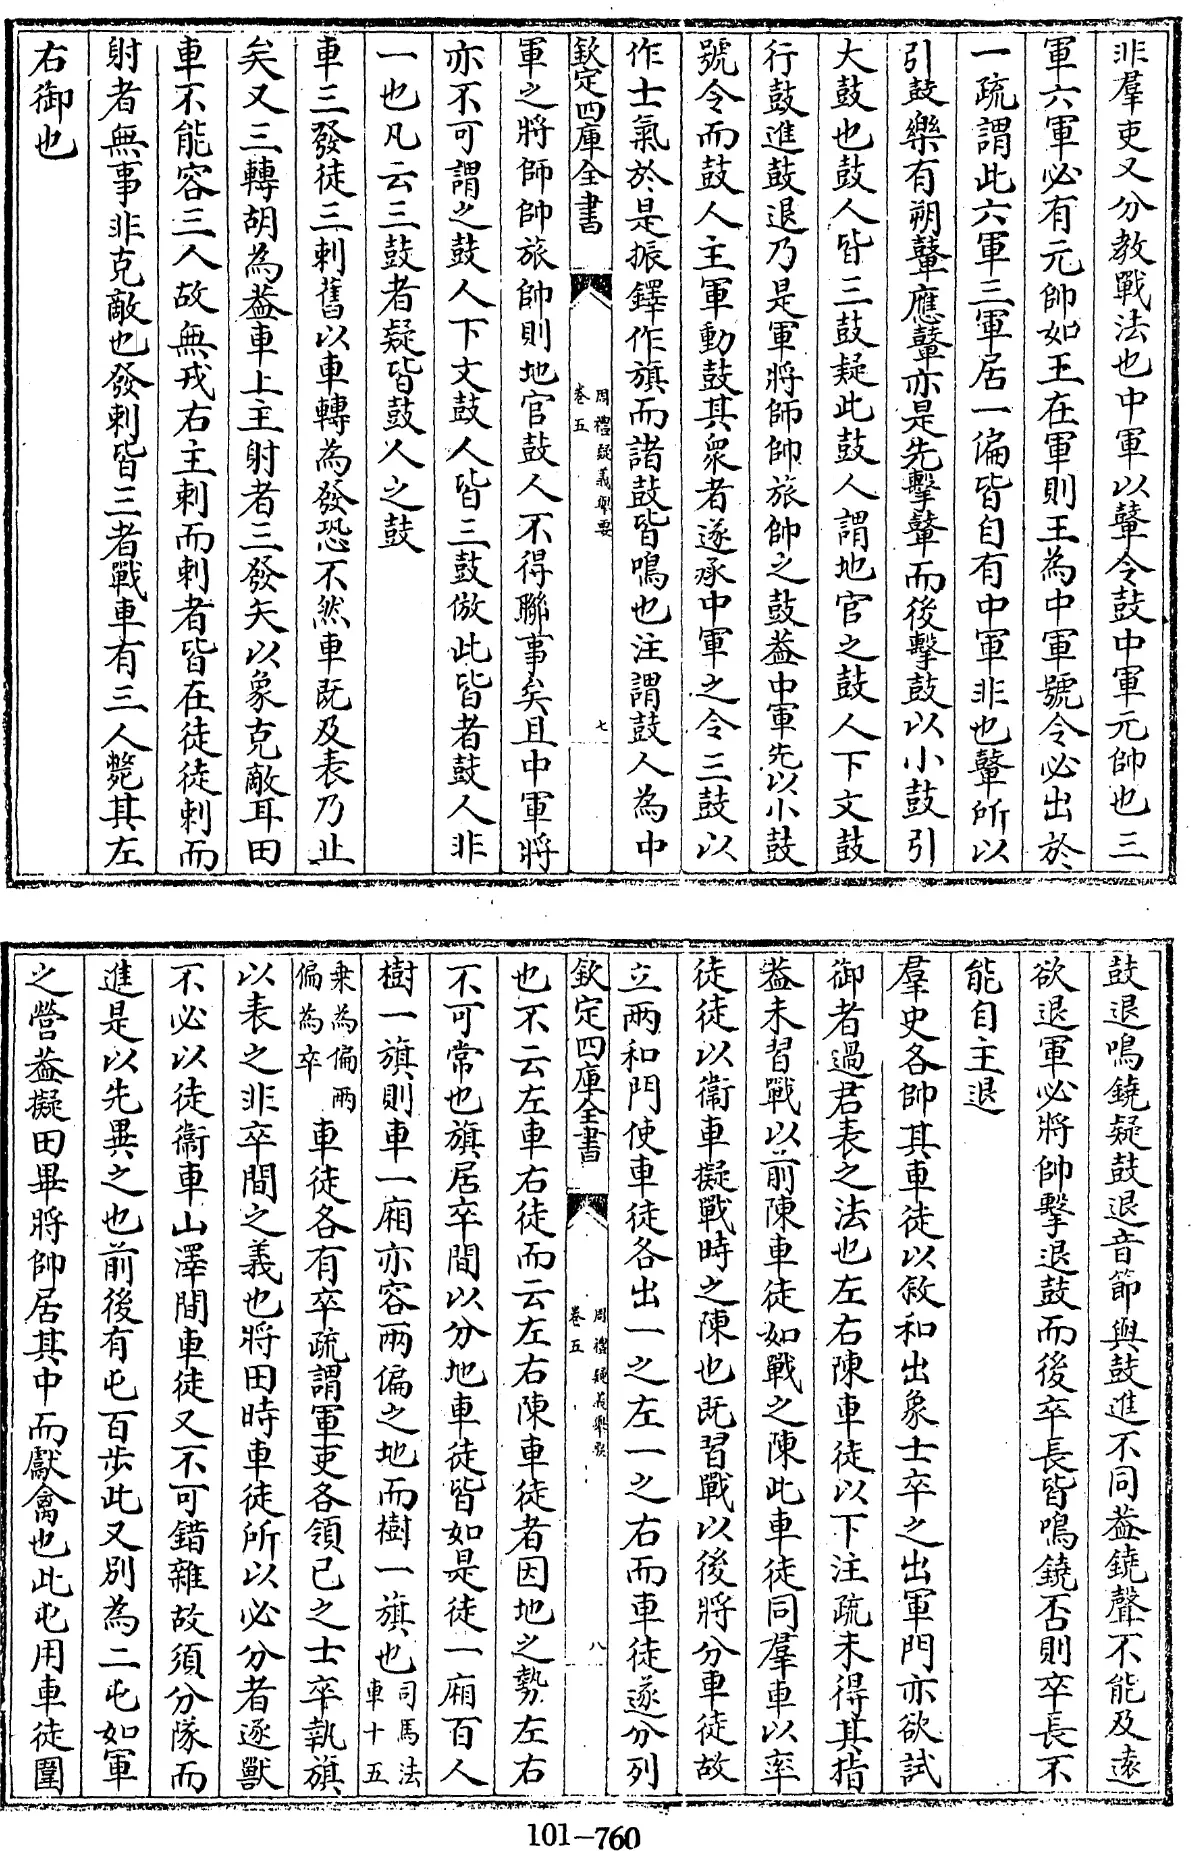 非羣吏又分教戰法也中軍以鼙令鼓中軍元帥也三
軍六軍必有元帥如王在軍則王為中軍號令必出於
一疏謂此六軍三軍居一偏皆自有中軍非也鼙所以
引鼓樂有朔鼙應鼙亦是先擊鼙而後擊鼓以小鼓引
大鼓也鼓人皆三鼓疑此鼓人謂地官之鼓人下文鼓
行鼓進鼓退乃是軍將師帥旅帥之鼓葢中軍先以小鼓
號令而鼓人主軍動鼓其衆者遂承中軍之令三鼓以
作士氣於是振鐸作旗而諸鼓皆鳴也注謂鼓人為中
欽定四庫全書
周禮疑義舉要
卷五
七
軍之將師帥旅帥則地官鼓人不得聯事矣且中軍將
亦不可謂之鼓人下文鼓人皆三鼓倣此皆者鼓人非
一也凡云三鼓者疑皆鼓人之鼓
車三發徒三刺舊以車轉為發恐不然車既及表乃止
矣又三轉胡為葢車上主射者三發矢以象克敵耳田
車不能容三人故無戎右主刺而刺者皆在徒徒刺而
射者無事非克敵也發刺皆三者戰車有三人斃其左
右御也
鼓退鳴鐃疑鼓退音節與鼓進不同葢鐃聲不能及遠
欲退軍必將帥擊退鼓而後卒長皆鳴鐃否則卒長不
能自主退
羣吏各帥其車徒以敘和出象士卒之出軍門亦欲試
御者過君表之法也左右陳車徒以下注疏未得其指
葢未習戰以前陳車徒如戰之陳此車徒同羣車以率
徒徒以衞車擬戰時之陳也既習戰以後將分車徒故
立兩和門使車徒各出一之左一之右而車徒遂分列
欽定四庫全書
周禮疑義舉要
卷五
八
也不云左車右徒而云左右陳車徒者因地之勢左右
不可常也旗居卒間以分地車徒皆如是徒一廂百人
樹一旗則車一廂亦容兩偏之地而樹一旗也司馬法
車十五
乗為偏兩
偏為卒車徒各有卒疏謂軍吏各領己之士卒執旗
以表之非卒間之義也將田時車徒所以必分者逐獸
不必以徒衞車山澤間車徒又不可錯雜故須分隊而
進是以先異之也前後有屯百步此又別為二屯如軍
之營葢擬田畢將帥居其中而獻禽也此屯用車徒圍
101-760